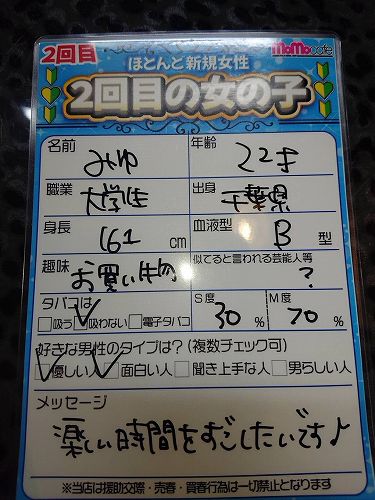 2回目 MoMocafe
ほとんど新規女性
2回目の女の子
名前 みゆ 年齢 22才
職業 大学生 出身 千葉県
身長 161 cm 血液型 B 型
趣味 お買い物 似てると言われる芸能人等 ?
タバコは S度 30 % M度 70 %
□吸う ☑吸わない □電子タバコ
好きな男性のタイプは?(複数チェック可)
☑優しい人 ☑面白い人 □聞き上手な人 □男らしい人
メッセージ
楽しい時間をすごしたいです♪
※当店は援助交際・売春・買春行為は一切禁止となります